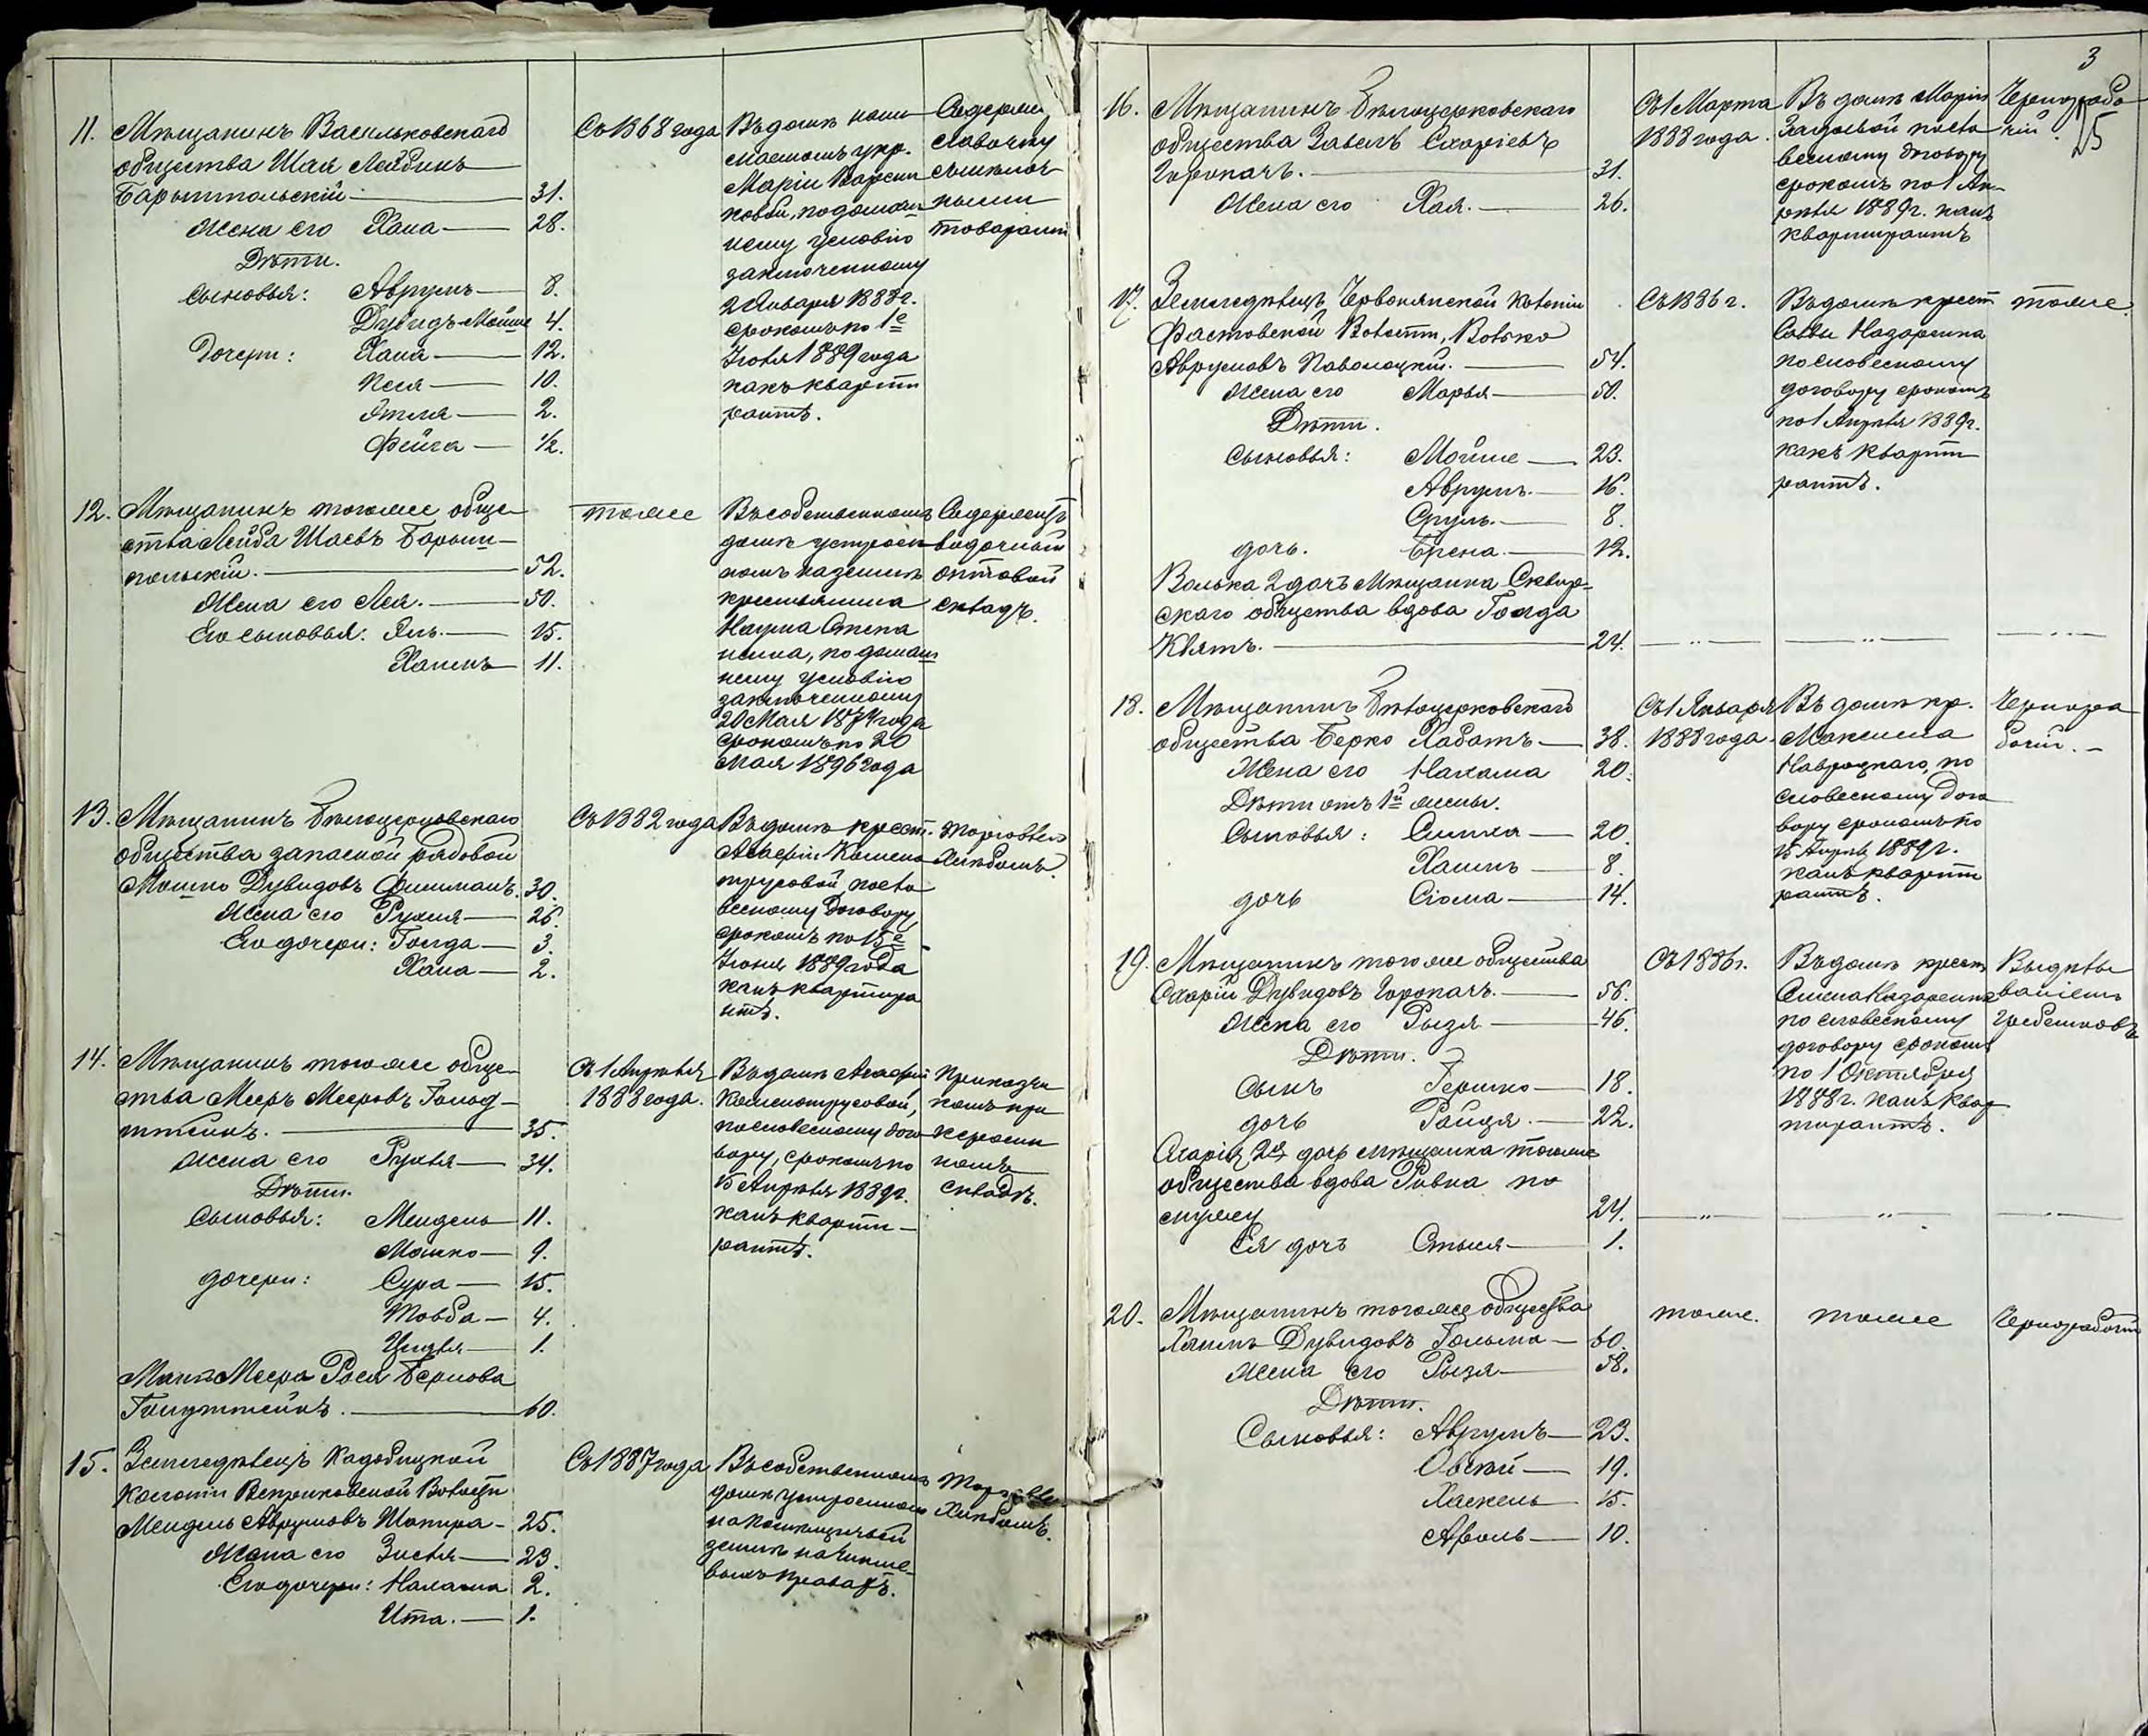 11. Мѣщанинъ Васильковскаго
общества Шая Лейбинъ
Барышпольскій 31.
Жена его Хана 28.
Дѣти.
Сыновья: Аврумъ 8.
Дувидъ-Мойше 4.
Дочери: Хана 12.
Песя 10.
Этля 2.
Фейга 1/2.
Съ 1868 года
Въ домѣ
Маріи
ковой, по домаш
нему условію
заключенному
2 Января 1888 г.
срокомъ по 1е
Іюля 1889 года
какъ кварти
рантъ.
Содержи
лавочку
съ мѣлоч
ными
товарами
12. Мѣщанинъ тогоже обще-
ства Лейба Шаевъ Барыш-
польскій. 52.
Жена его Лея. 50.
Его сыновья: Янь. 15.
Хаимъ 11.
тоже
Въ собственномъ
домѣ устроен
номъ на землѣ
крестьянина
Наума Степа
ненка, по домаш
нему условію
заключенному
20 Мая 1874 года
срокомъ по 20
Мая 1896 года
Содержитъ
водочный
оптовой
складъ.
13. Мѣщанинъ Бѣлоцерковскаго
общества запасной рядовой
Мошко Дувидовъ Фишманъ. 30.
Жена его Рухля 26.
Его дочери: Голда 3.
Хана 2.
Съ 1882 года
Въ домѣ крест.
Агафіи Камено
трусовой, посло
весному договору
срокомъ по 15е
Іюня 1889 года
какъ квартира
нтъ.
Торговлею
Хлѣбомъ.
14. Мѣщанинъ тогоже обще-
ства Мееръ Мееровъ Гольд-
штейнъ. 35.
Жена его Рухля 34.
Дѣти.
Сыновья: Мендель 11.
Мошко 9.
дочери: Сура 15.
Товба 4.
Цирля 1.
Мать Меера Рося Беркова
Гольдштейнъ. 60.
Съ 1 Апрѣля
1888 года.
Въ домѣ Агафіи
Каменотрусовой,
по словесному дого
вору, срокомъ по
15 Апрѣля 1889 г.
какъ кварти-
рантъ.
Приказчи
комъ при
керосин
номъ
складѣ.
15. Земледѣлецъ Кадобицкой
Колоніи Веприковской Волости
Мендель Аврумовъ Шапира 25.
Жена его Зисля 23.
Его дочери: Нахама 2.
Ита. 1.
Съ 1887 года
Въ собственномъ
домѣ устроенномъ
на помѣщичьей
землѣ на чинше-
выхъ правахъ.
Торговлею
Хлѣбомъ.
3
25
16. Мѣщанинъ Бѣлоцерковскаго
общества Завель Схаріевъ
Горокачъ. 31.
Жена его Хая. 26.
Съ 1 Марта
1888 года.
Въ домѣ Маріи
посло
весному договору
срокомъ по 1 Ап-
рѣля 1889 г. какъ
квартирантъ
Чернорабо
чій.
17. Земледѣлецъ Червонянской Колоніи
Фастовской Волости, Волько
Аврумовъ Паволоцкій. 54.
Жена его Марья 50.
Дѣти.
Сыновья: Мойше 23.
Аврумъ. 16.
Сруль. 8.
дочь. Брена. 12.
Волька 2 дочь Мѣщанка Сквир-
скаго общества вдова Голда
Квятъ. 24.
Съ 1886 г.
Въ домѣ крест
Саввы Назаренка
по словесному
договору срокомъ
по 1 Апрѣля 1889 г.
какъ кварти
рантъ.
тоже.
18. Мѣщанинъ Бѣлоцерковскаго
общества Берко Хабатъ 38.
Жена его Нахама 20.
Дѣти отъ 1й жены.
Сыновья: Симха 20.
Хаимъ 8.
дочь Сіома 14.
Съ 1 Января
1888 года.
Въ домѣ кр.
Максима
Навроцкаго, по
словесному дого
вору срокомъ по
15 Апрѣл 1889 г.
какъ кварти
рантъ.
Чернора
бочій. -
19. Мѣщанинъ тогоже общества
Схарій Дувидовъ Горокачъ. 56.
Жена его Рызя 46.
Дѣти.
Сынъ Гершко 18.
дочь Райця. 22.
Схарія 2я дочь мѣщанка тогоже
общества вдова Ривка по
мужу 24.
Ея дочь Стыся 1.
Съ 1886 г.
Въ домѣ крест
Семена Назаренка
по словесному
договору срокомъ
по 1 Октября
1888 г. какъ квар
тирантъ.
Выдѣлы
ваніемъ
Гребешковъ
20. Мѣщанинъ тогоже общества
Хаимъ Дувидовъ Голько 60.
Жена его Рызя 58.
Дѣти.
Сыновья: Аврумъ 23.
Овсѣй 19.
Хаскель 15.
Сроль 10.
тоже.
тоже
Чернорабочій